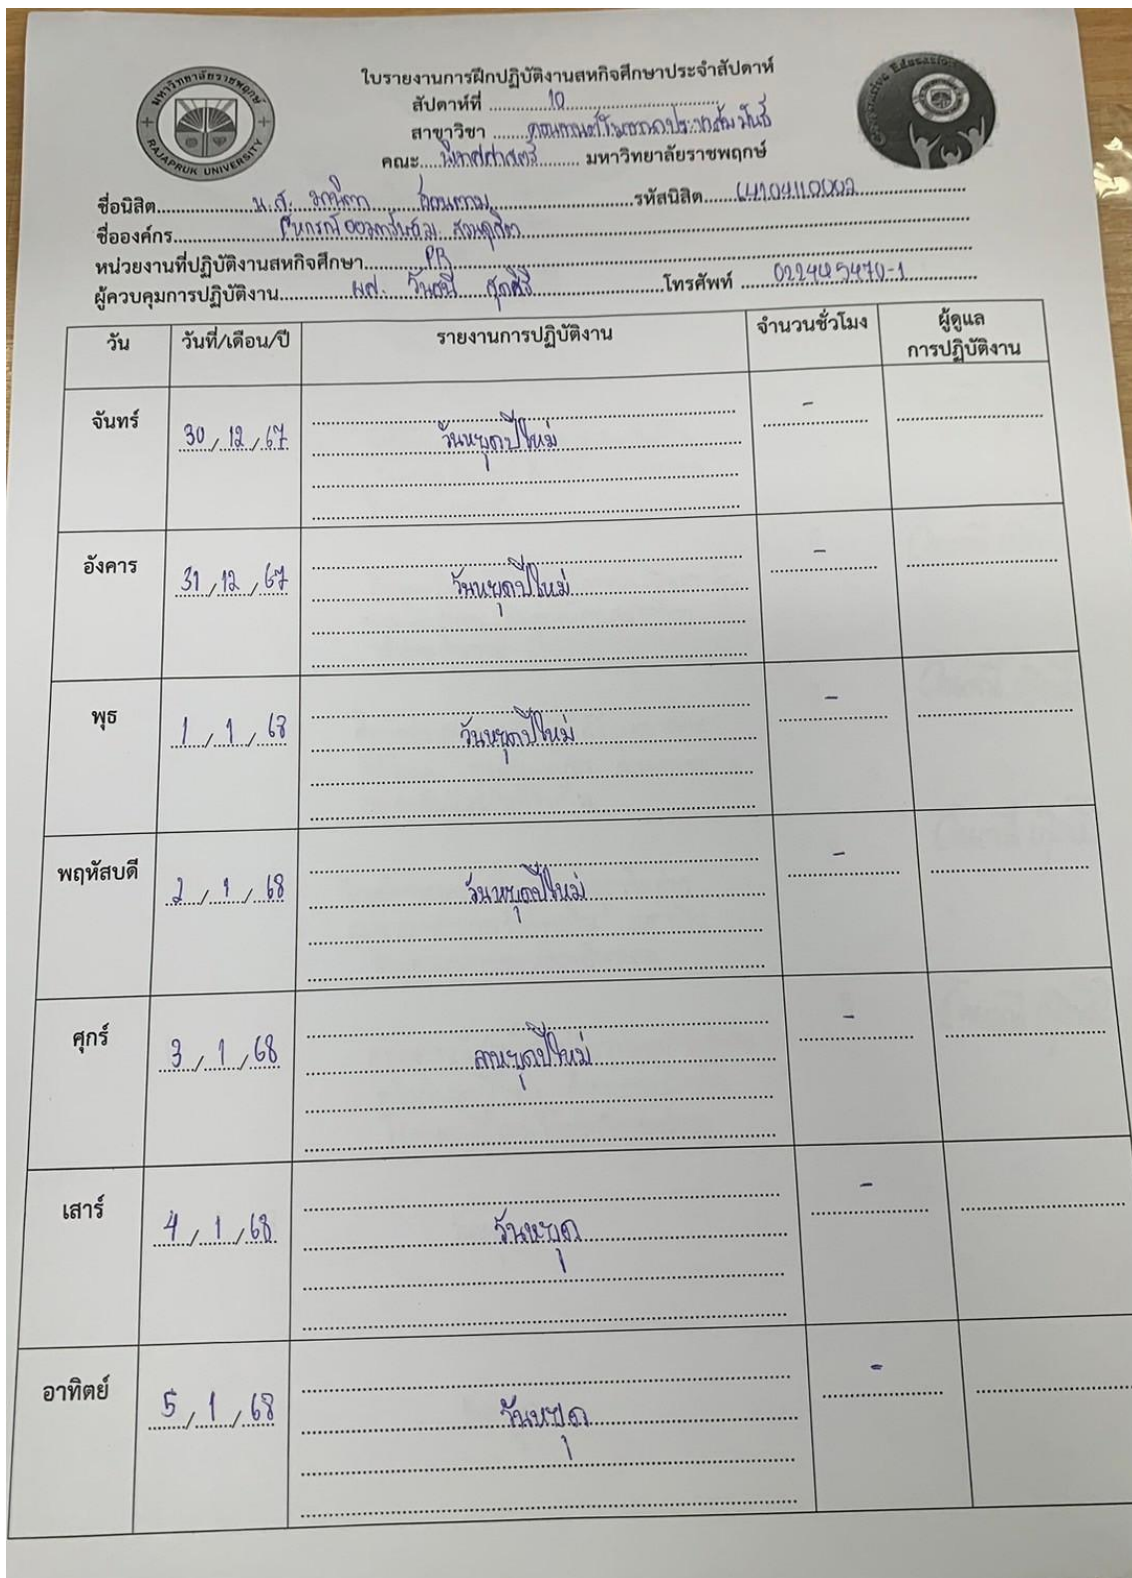 มหาวิทยาลัยราชพฤกษ์
RAJAPRUK UNIVERSITY
ใบรายงานการฝึกปฏิบัติงานสหกิจศึกษาประจำสัปดาห์
สัปดาห์ที่ 10
สาขาวิชา
คณะ นิเทศศาสตร์ มหาวิทยาลัยราชพฤกษ์
ชื่อนิสิต น.ส. รหัสนิสิต
ชื่อองค์กร สวนดุสิต
หน่วยงานที่ปฏิบัติงานสหกิจศึกษา PR
ผู้ควบคุมการปฏิบัติงาน ผศ. โทรศัพท์ 022445470-1
วัน วันที่/เดือน/ปี รายงานการปฏิบัติงาน จำนวนชั่วโมง ผู้ดูแลการปฏิบัติงาน
จันทร์ 30/12/67 วันหยุดปีใหม่ -
อังคาร 31/12/67 วันหยุดปีใหม่ -
พุธ 1/1/68 วันหยุดปีใหม่ -
พฤหัสบดี 2/1/68 วันหยุดปีใหม่ -
ศุกร์ 3/1/68 ลาหยุดปีใหม่ -
เสาร์ 4/1/68 วันหยุด -
อาทิตย์ 5/1/68 วันหยุด -